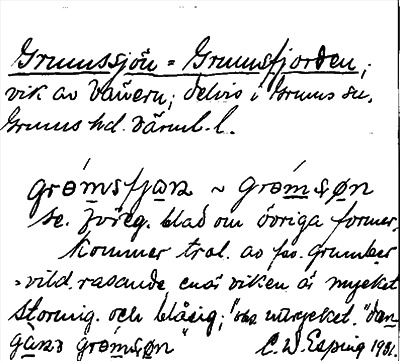 Grumssjön = Grumsfjorden;
vik av Vänern; delvis i Grums sn,
Grums hd. Värml. l.
grømsfjan ~ grømsøn
se. föreg. blad om övriga former.
Kommer trol. av fsv. grumber
»vild, rasande enär viken är mycket
stormig och blåsig; uttrycket "dan
grømsøn" C. W. Esping 1931.